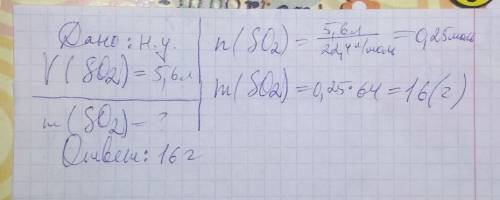 Дано: н.у.
V(SO2) = 5,6 л
m(SO2) = ?
Ответ: 16 г
n(SO2) = 5,6 л / 22,4 л/моль = 0,25 моль
m(SO2) = 0,25 • 64 = 16 (г)